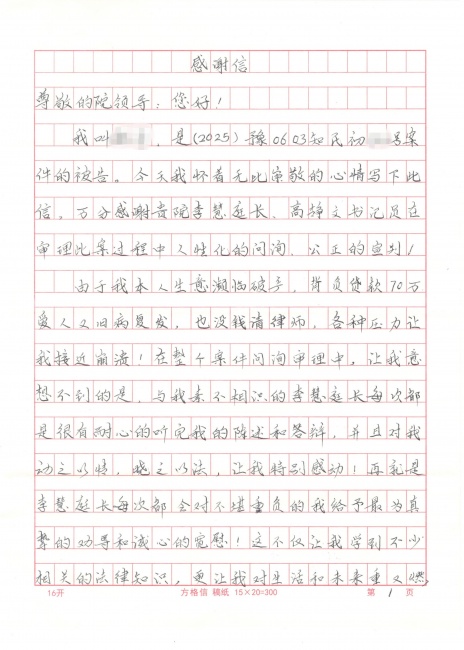 感谢信
尊敬的院领导：您好！
我叫 ，是(2025)豫0603知民初 号案
件的被告。今天我怀着无比崇敬的心情写下此
信。万分感谢贵院李慧庭长、高 文书记员在
审理此案过程中人性化的问询、公正的宣判！
由于我本人生意濒临破产，背负贷款70万
爱人又旧病复发，也没钱请律师，各种压力让
我接近崩溃！在整个案件问询审理中，让我意
想不到的是，与我素不相识的李慧庭长每次都
是很有耐心的听完我的陈述和答辩，并且对我
动之以情，晓之以法，让我特别感动！再就是
李慧庭长每次都会对不堪重负的我给予最为真
挚的劝导和诚心的宽慰！这不仅让我学到不少
相关的法律知识，更让我对生活和未来重又燃
16开
方格信 稿纸 15×20=300
第 1 页